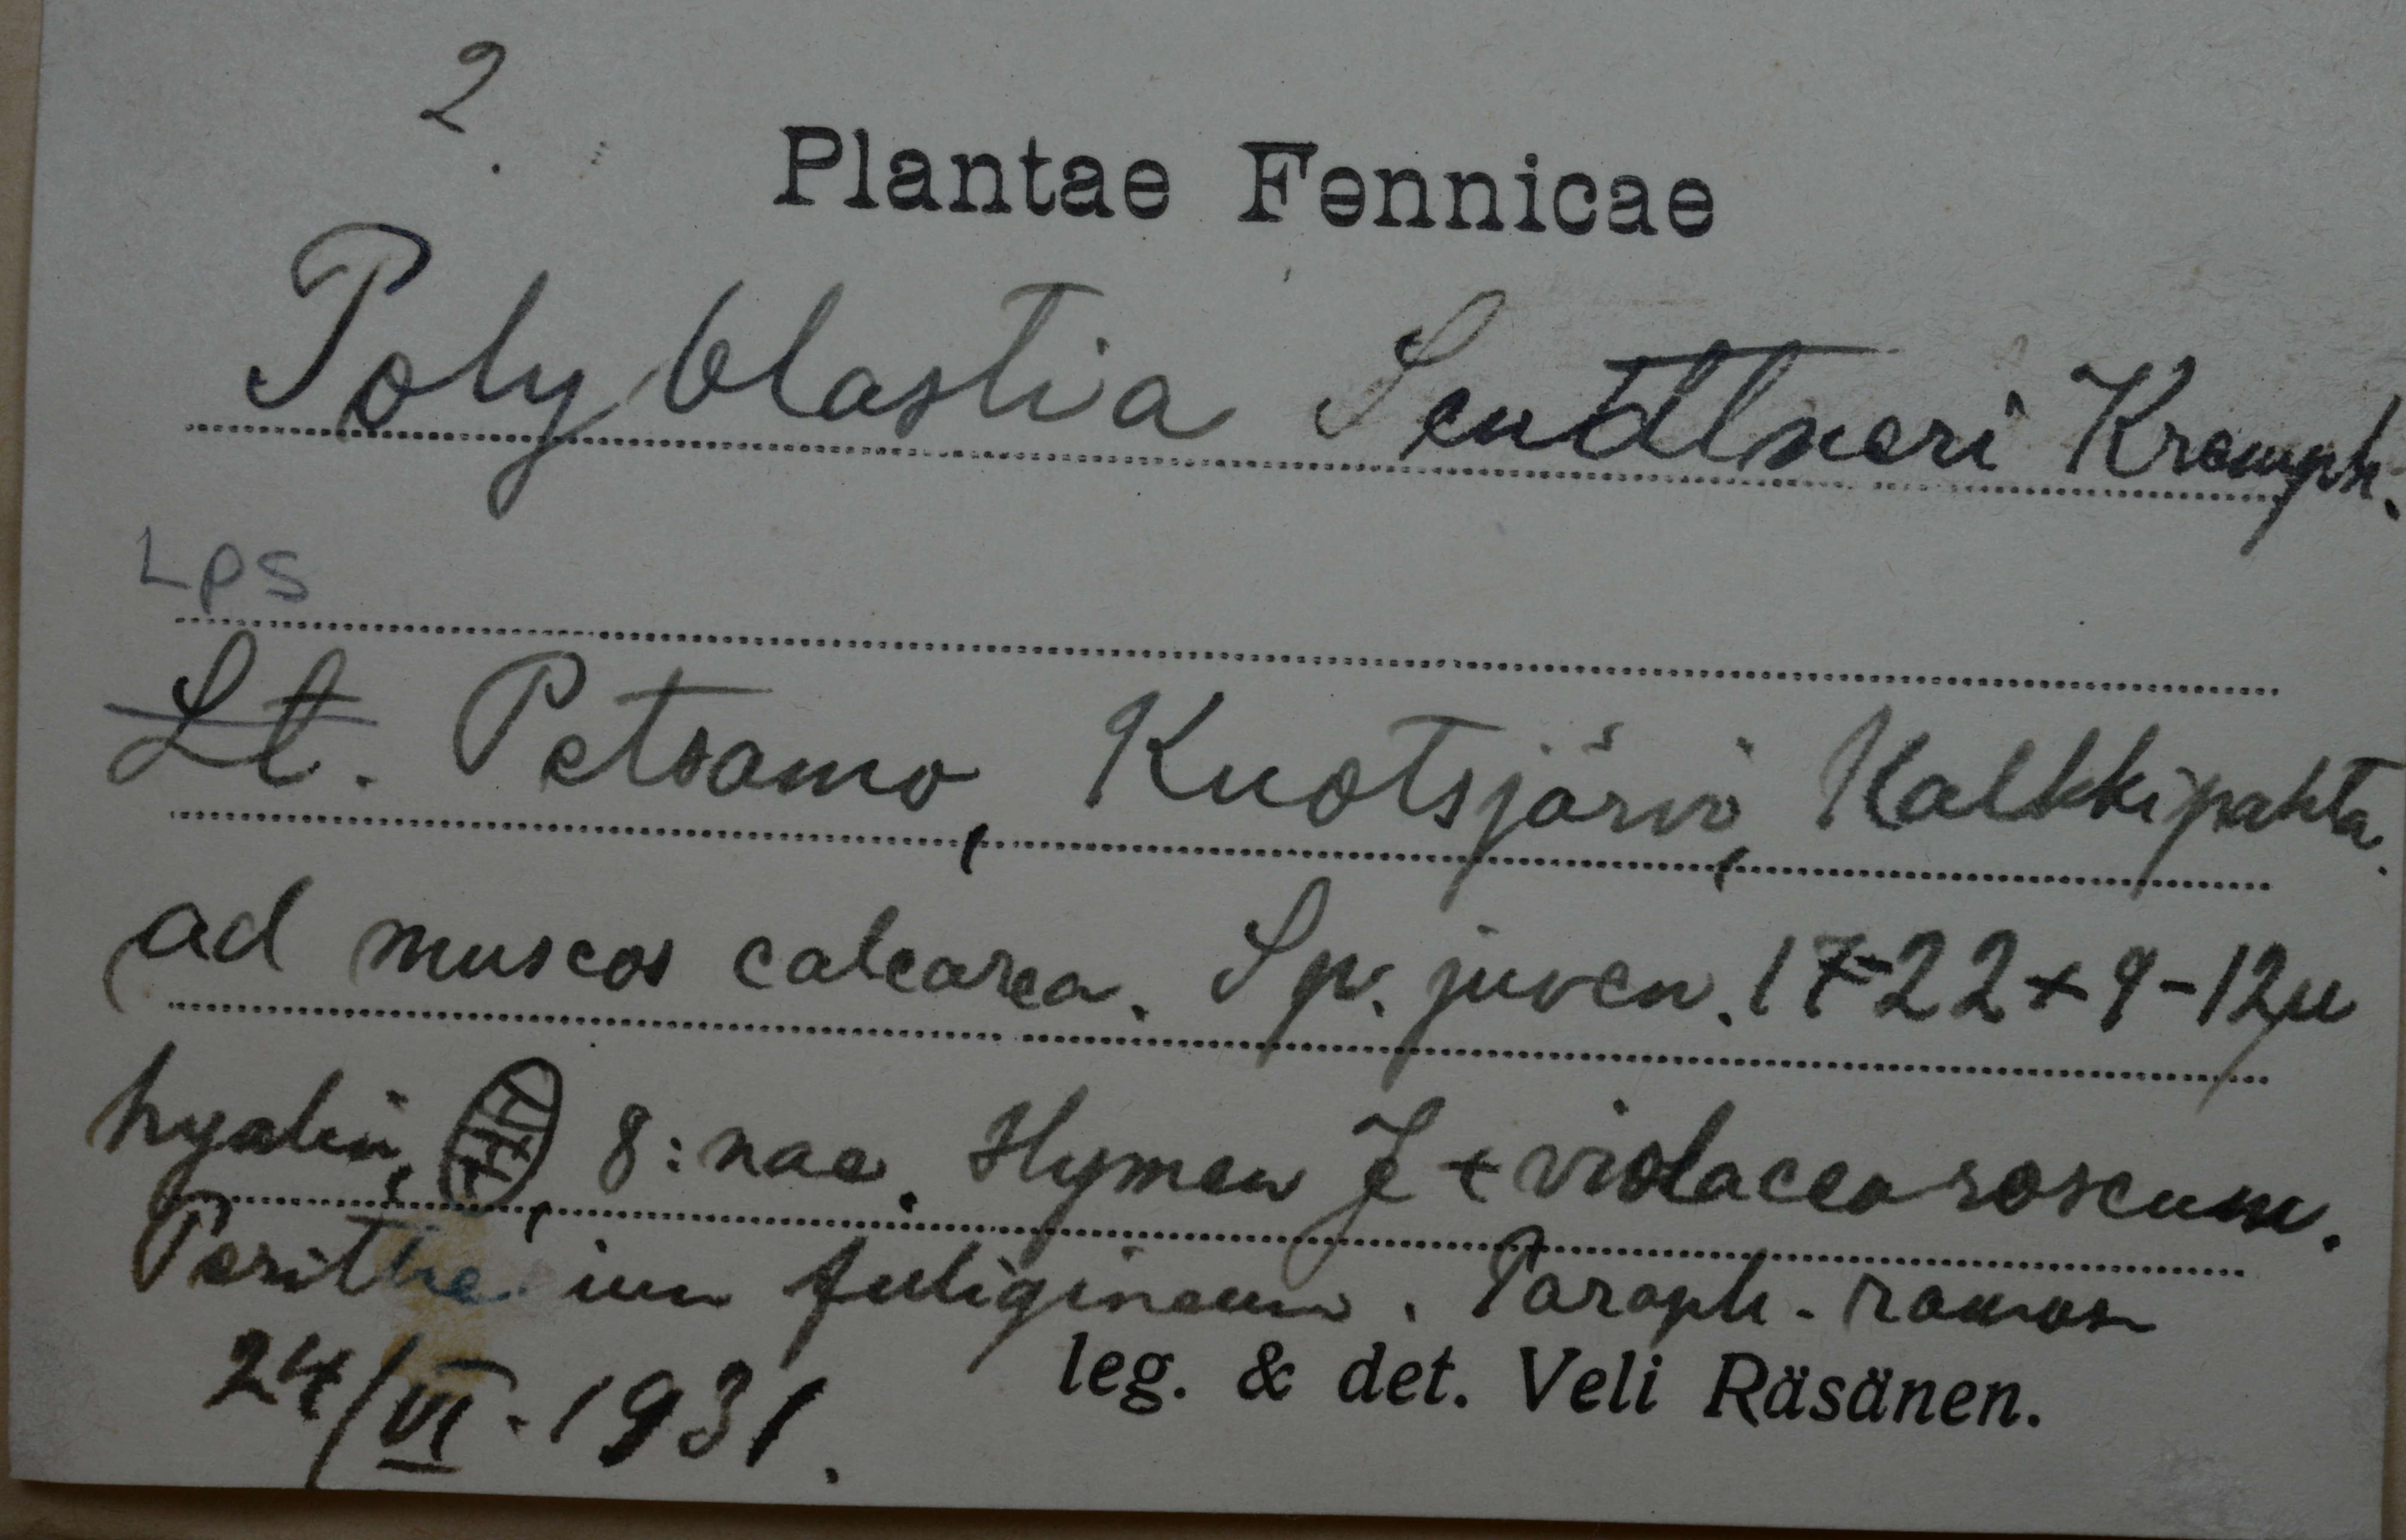 2.
Plantae Fennicae
Polyblastia Sendtneri Kremph.
Lps
Lt. Petsamo, Kuotsjärvi, Kalkkipahta.
ad muscos calcarea. Sp. juven. 17-22×9-12µ
hyalin, 8:nae. Hymen J + violaceoroseum.
Perithecium fuligineum. Paraph. ramos
24/VI. 1931. leg. & det. Veli Räsänen.